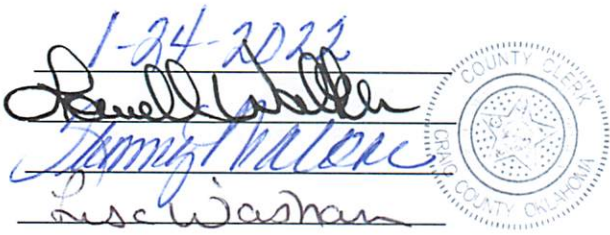 1-24-2022
Lowell Walker
Tammy Malone
Lisa Washam
COUNTY CLERK
CRAIG COUNTY OKLAHOMA